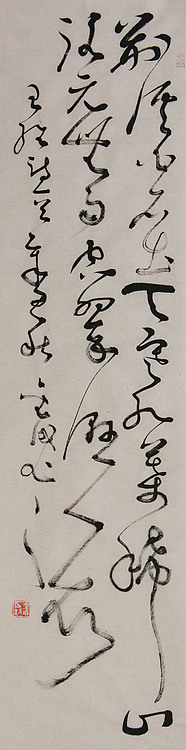 荆溪白石出天寒红葉稀山
路元無雨空翠濕人衣
王維詩一首